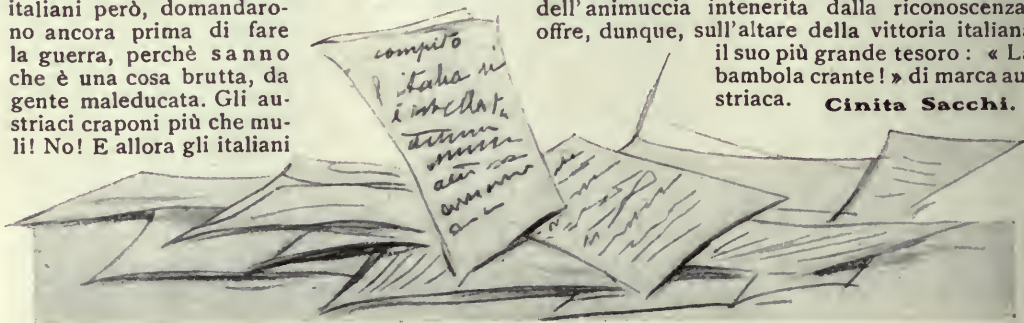 italiani però, domandaro-
no ancora prima di fare
la guerra, perchè sanno
che è una cosa brutta, da
gente maleducata. Gli au-
striaci craponi più che mu-
li! No! E allora gli italiani
compito
l'italia si
è
dell'animuccia intenerita dalla riconoscenza
offre, dunque, sull'altare della vittoria italian
il suo più grande tesoro: « L
bambola crante! » di marca au
striaca. Cinita Sacchi.